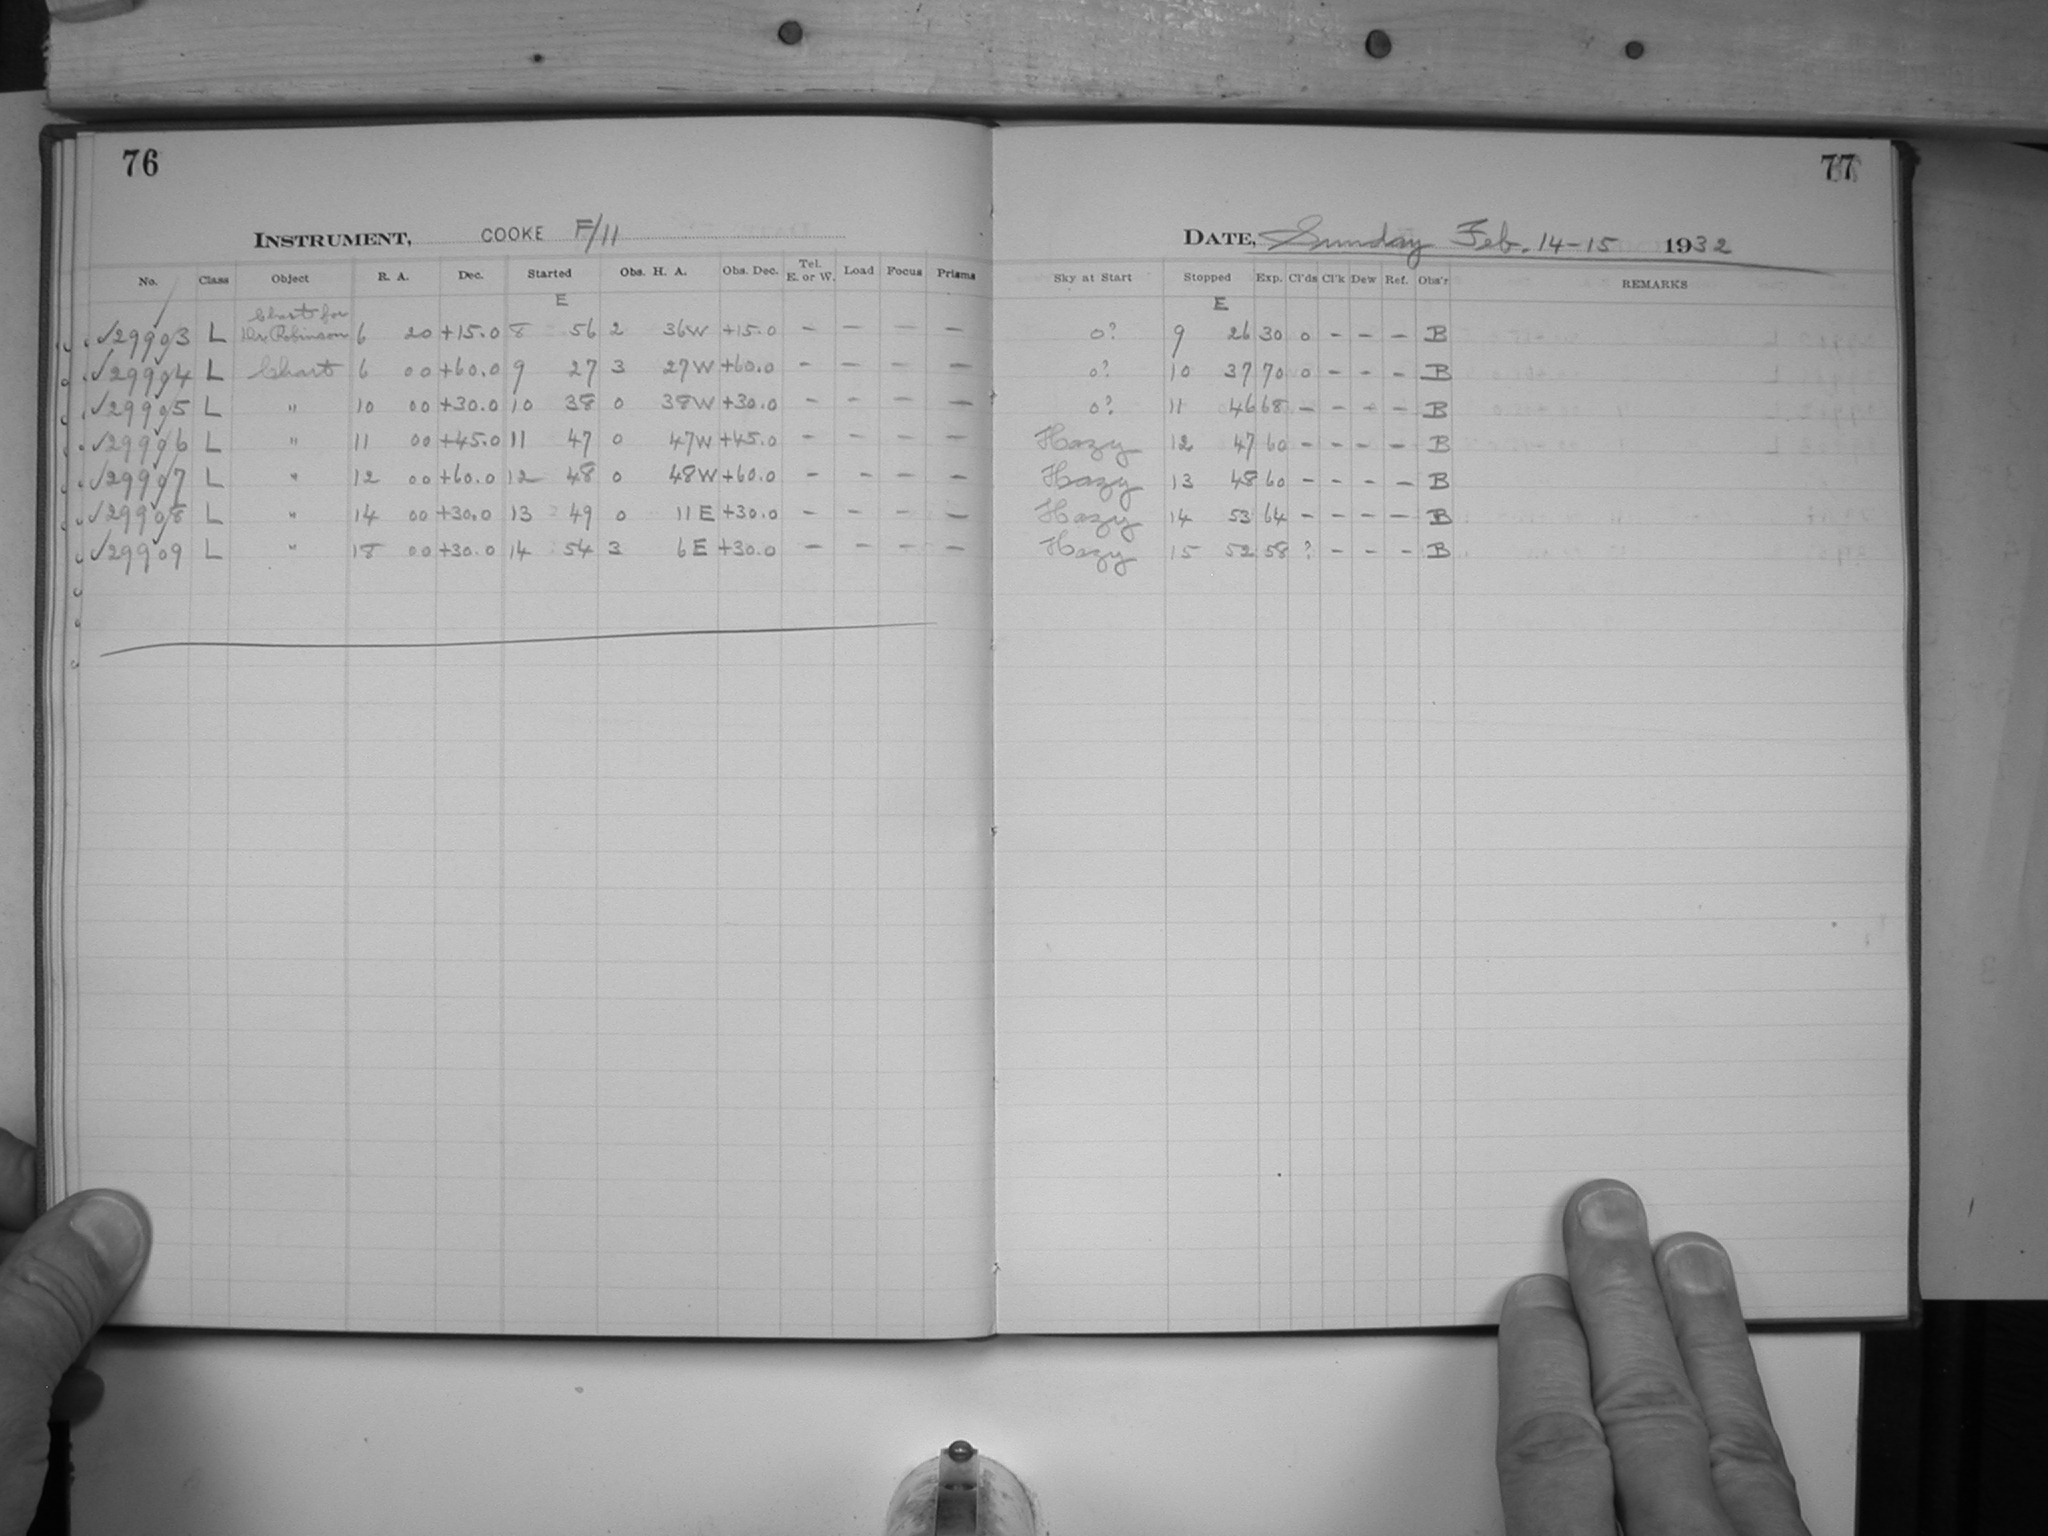 76
INSTRUMENT, COOKE F/11
No. Class Object R. A. Dec. Started Obs. H. A. Obs. Dec. Tel. E. or W. Load Focus Prisms
E
Chart for
✓29903 L Dr. Robinson 6 20 +15.0 8 56 2 36W +15.0 – – – –
✓29904 L Chart 6 00 +60.0 9 27 3 27W +60.0 – – – –
✓29905 L " 10 00 +30.0 10 38 0 38W +30.0 – – – –
✓29906 L " 11 00 +45.0 11 47 0 47W +45.0 – – – –
✓29907 L " 12 00 +60.0 12 48 0 48W +60.0 – – – –
✓29908 L " 14 00 +30.0 13 49 0 11E +30.0 – – – –
✓29909 L " 18 00 +30.0 14 54 3 6E +30.0 – – – –
77
DATE, Sunday Feb. 14-15 1932
Sky at Start Stopped Exp. Cl'ds Cl'k Dew Ref. Obs'r REMARKS
E
0? 9 26 30 0 – – – B
0? 10 37 70 0 – – – B
0? 11 46 68 – – – – B
Hazy 12 47 60 – – – – B
Hazy 13 48 60 – – – – B
Hazy 14 53 64 – – – – B
Hazy 15 52 58 ? – – – B